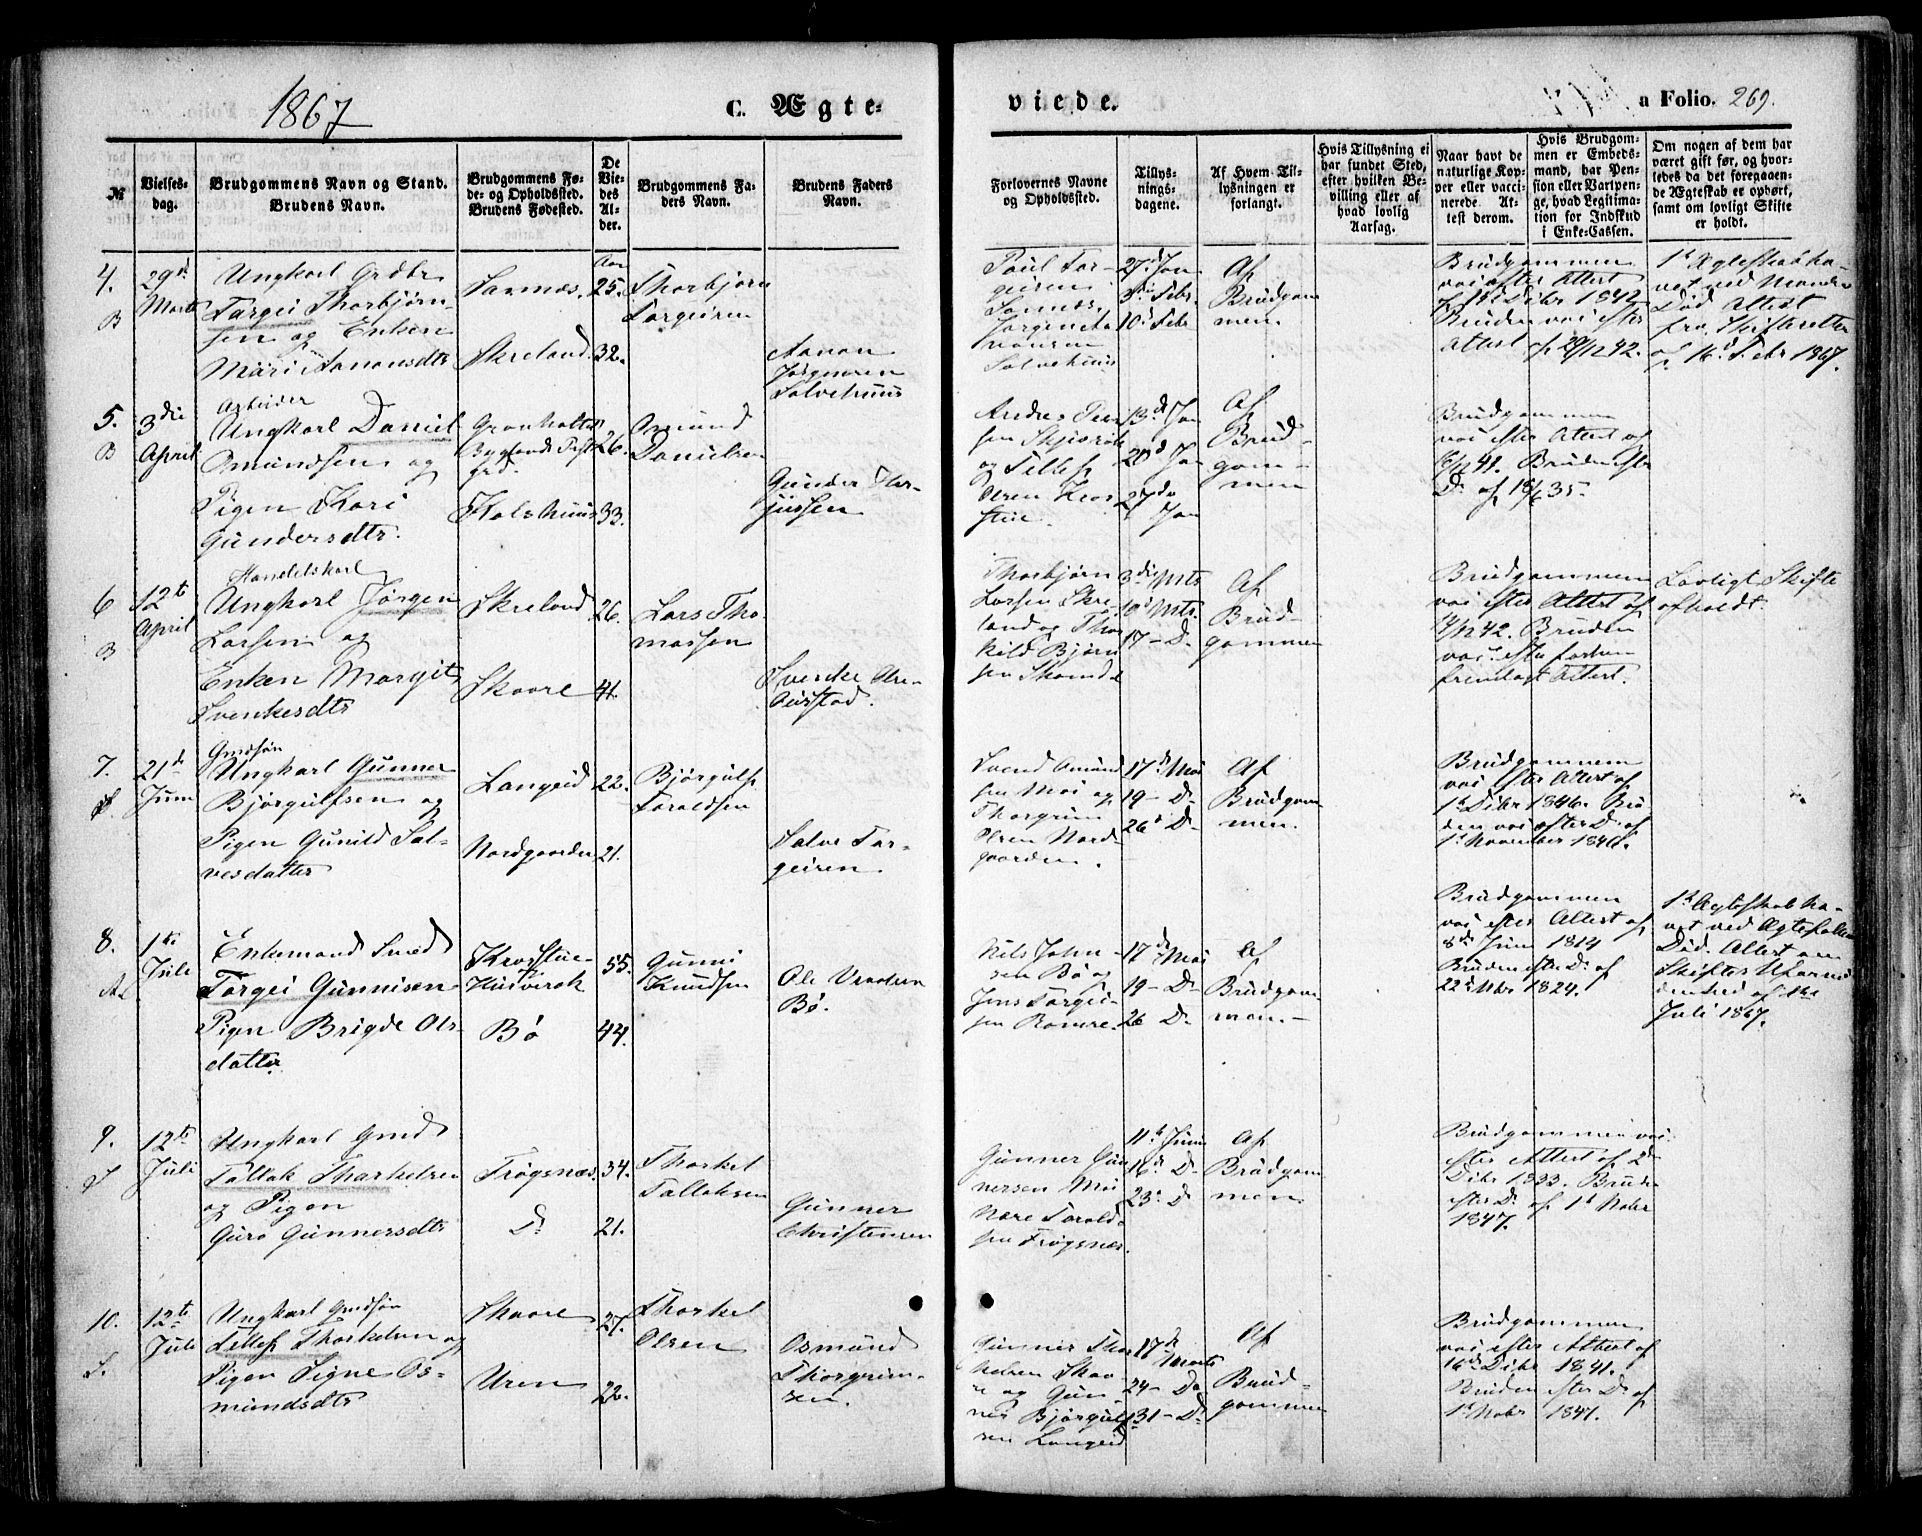 1867
C. Ægte-
viede.
a Folio. 269.
№
Vielses-
dag.
Brudgommens Navn og Stand.
Brudens Navn.
Brudgommens Fø-
de- og Opholdssted.
Brudens Fødested.
De
Vie-
des
Al-
der.
Brudgommens Fa-
ders Navn.
Brudens Faders
Navn.
Forlovernes Navne
og Opholdssted.
Tillys-
nings-
dagene.
Af Hvem Til-
lysningen er
forlangt.
Hvis Tillysning ei
har fundet Sted,
efter hvilken Be-
villing eller af
hvad lovlig
Aarsag.
Naar havt de
naturlige Kop-
per eller vacci-
nerede. At-
test derom.
Hvis Brudgom-
men er Embeds-
mand, har Pen-
sion eller Vartpen-
ge, hvad Legitima-
tion for Indskud
i Enke-Cassen.
Om nogen af dem har
været gift før, og hvor-
ledes da det foregaaen-
de Ægteskab er ophørt,
samt om lovligt Skifte
er holdt.
4.
B
29de
Marts
Ungkarl
Targei Thorbjørn-
sen og Enken
Mari Aanonsdtr
Sannæs.
Skreland.
Aar
25.
32.
Thorbjørn
Torgeisen
Aanon
Jørgensen
Solvehuus
Poul Tor-
geisen
Sannæs
Solvehuus
27d Jan
3die Febr.
10d Febr
Af
Brudgom
men.
Brudgommen
vac efter Attest
af 1ste Dcbr 1842
Bruden vac efter
Attest af 20/12 42.
1st Ægteskab hæ-
vet ved Mandens
Død Attest
fra Skifteretten
af 16d Febr 1867.
5.
B
3die
April
Arbeider
Ungkarl Daniel
Omundsen og
Pigen Kari
Gundersdtr.
Bygland
Kolshuus
26.
33.
Omund
Danielsen
Gunder Ter-
jussen
Andres
og Tellef
Olsen Kros-
stue.
13d Jan
20d Jan
27de
Jan
Af
Brud-
gom-
men
Brudgommen
vac efter Attest af
6/12 41. Bruden efter
Do af 18/6 35.
6
B
12t
April
Handelskarl
Ungkarl Jørgen
Larsen og
Enken Margit
Svenkesdtr
Skreland
Skaare
26.
41.
Lars Tho-
massen
Svenke Olsen
Austad.
Thorbjørn
Larsen Skre
land og Thor
kild Bjørn
sen
3die Mts
10d Mts.
17 - Do
Af
Brud-
gommen
Brudgommen
vac efter Attest af
/12 42. Bruden
vac efter forhen
fremlagt Attest.
Lovligt Skifte
afholdt.
7.
S.
21d
Juni
Gmdsøn
Ungkarl Gunner
Bjørgulfsen og
Pigen Gunild Sal-
vesdatter
Langeid
Nordgaarden
22.
21.
Bjørgulf
Taraldsen
Salve Tor-
geisen
Svend Omund
sen Moi og
Thorgrim
Olsen Nord-
gaarden.
17d Mai
19 - Do
26d Do
Af
Brudgom
men.
Brudgommen
vac efter Attest af
1st Dcbr 1846. Bru
den vac efter Do af
1st November 1846.
8.
A.
1ste
Juli
Enkemand Smed
Torgei Gunnisen
Pigen Brigde Ols
datter
Krosstue-
Bø
55.
44.
Gunni
Knudsen
Ole
Bø.
Nils John-
sen Bø og
Jens Torgei-
sen
17de Mai
19 - Do
26 Do
Af
Brudgom
men.
Brudgommen
vac efter Attest af
8de Juni 1814
Bruden efter Do af
22d Nbr 1824.
1st Ægteskab hæ-
vet ved Ægtefællens
Død. Attest om
Skiftes Ufornø
denhed af 1ste
Juli 1867.
9.
S
12te
Juli
Ungkarl Gmd
Tallak Tharkelsen
og Pigen
Guro Gunnersdtr
Frøgsnæs.
Do
34.
21.
Thorkel
Tallaksen
Gunner
Christensen
Gunner Gun
nersen Moi
Nære Tarald-
sen Frøgsnæs.
11t Juni
16d Do
23d Do
Af
Brudgom
men
Brudgommen vac
efter Attest af 2d
Dcbr 1833. Bruden
efter Do af 1st Nobr
1847.
10.
S.
12te
Juli
Ungkarl Gmdsøn
Tellef Thorkelsen og
Pigen Signe Os-
mundsdtr
Skaare
Uren
27.
22.
Thorkel
Olsen
Osmund
Thorgrim-
sen.
Gunner Thor
kelsen Skaa
re og Gun
ner Bjørgulf
sen Langeid
17de
Marts
24 - Do
31 - Do
Af
Brud-
gommen
Brudgommen
vac efter Attest af
16de Dcbr 1841.
Bruden efter Do af
1st Nobr 1847.